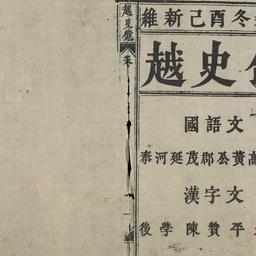 維新己酉冬
越史
國語文
泰河延茂郡公黃高
漢字文
後學陳贊平
越史鏡